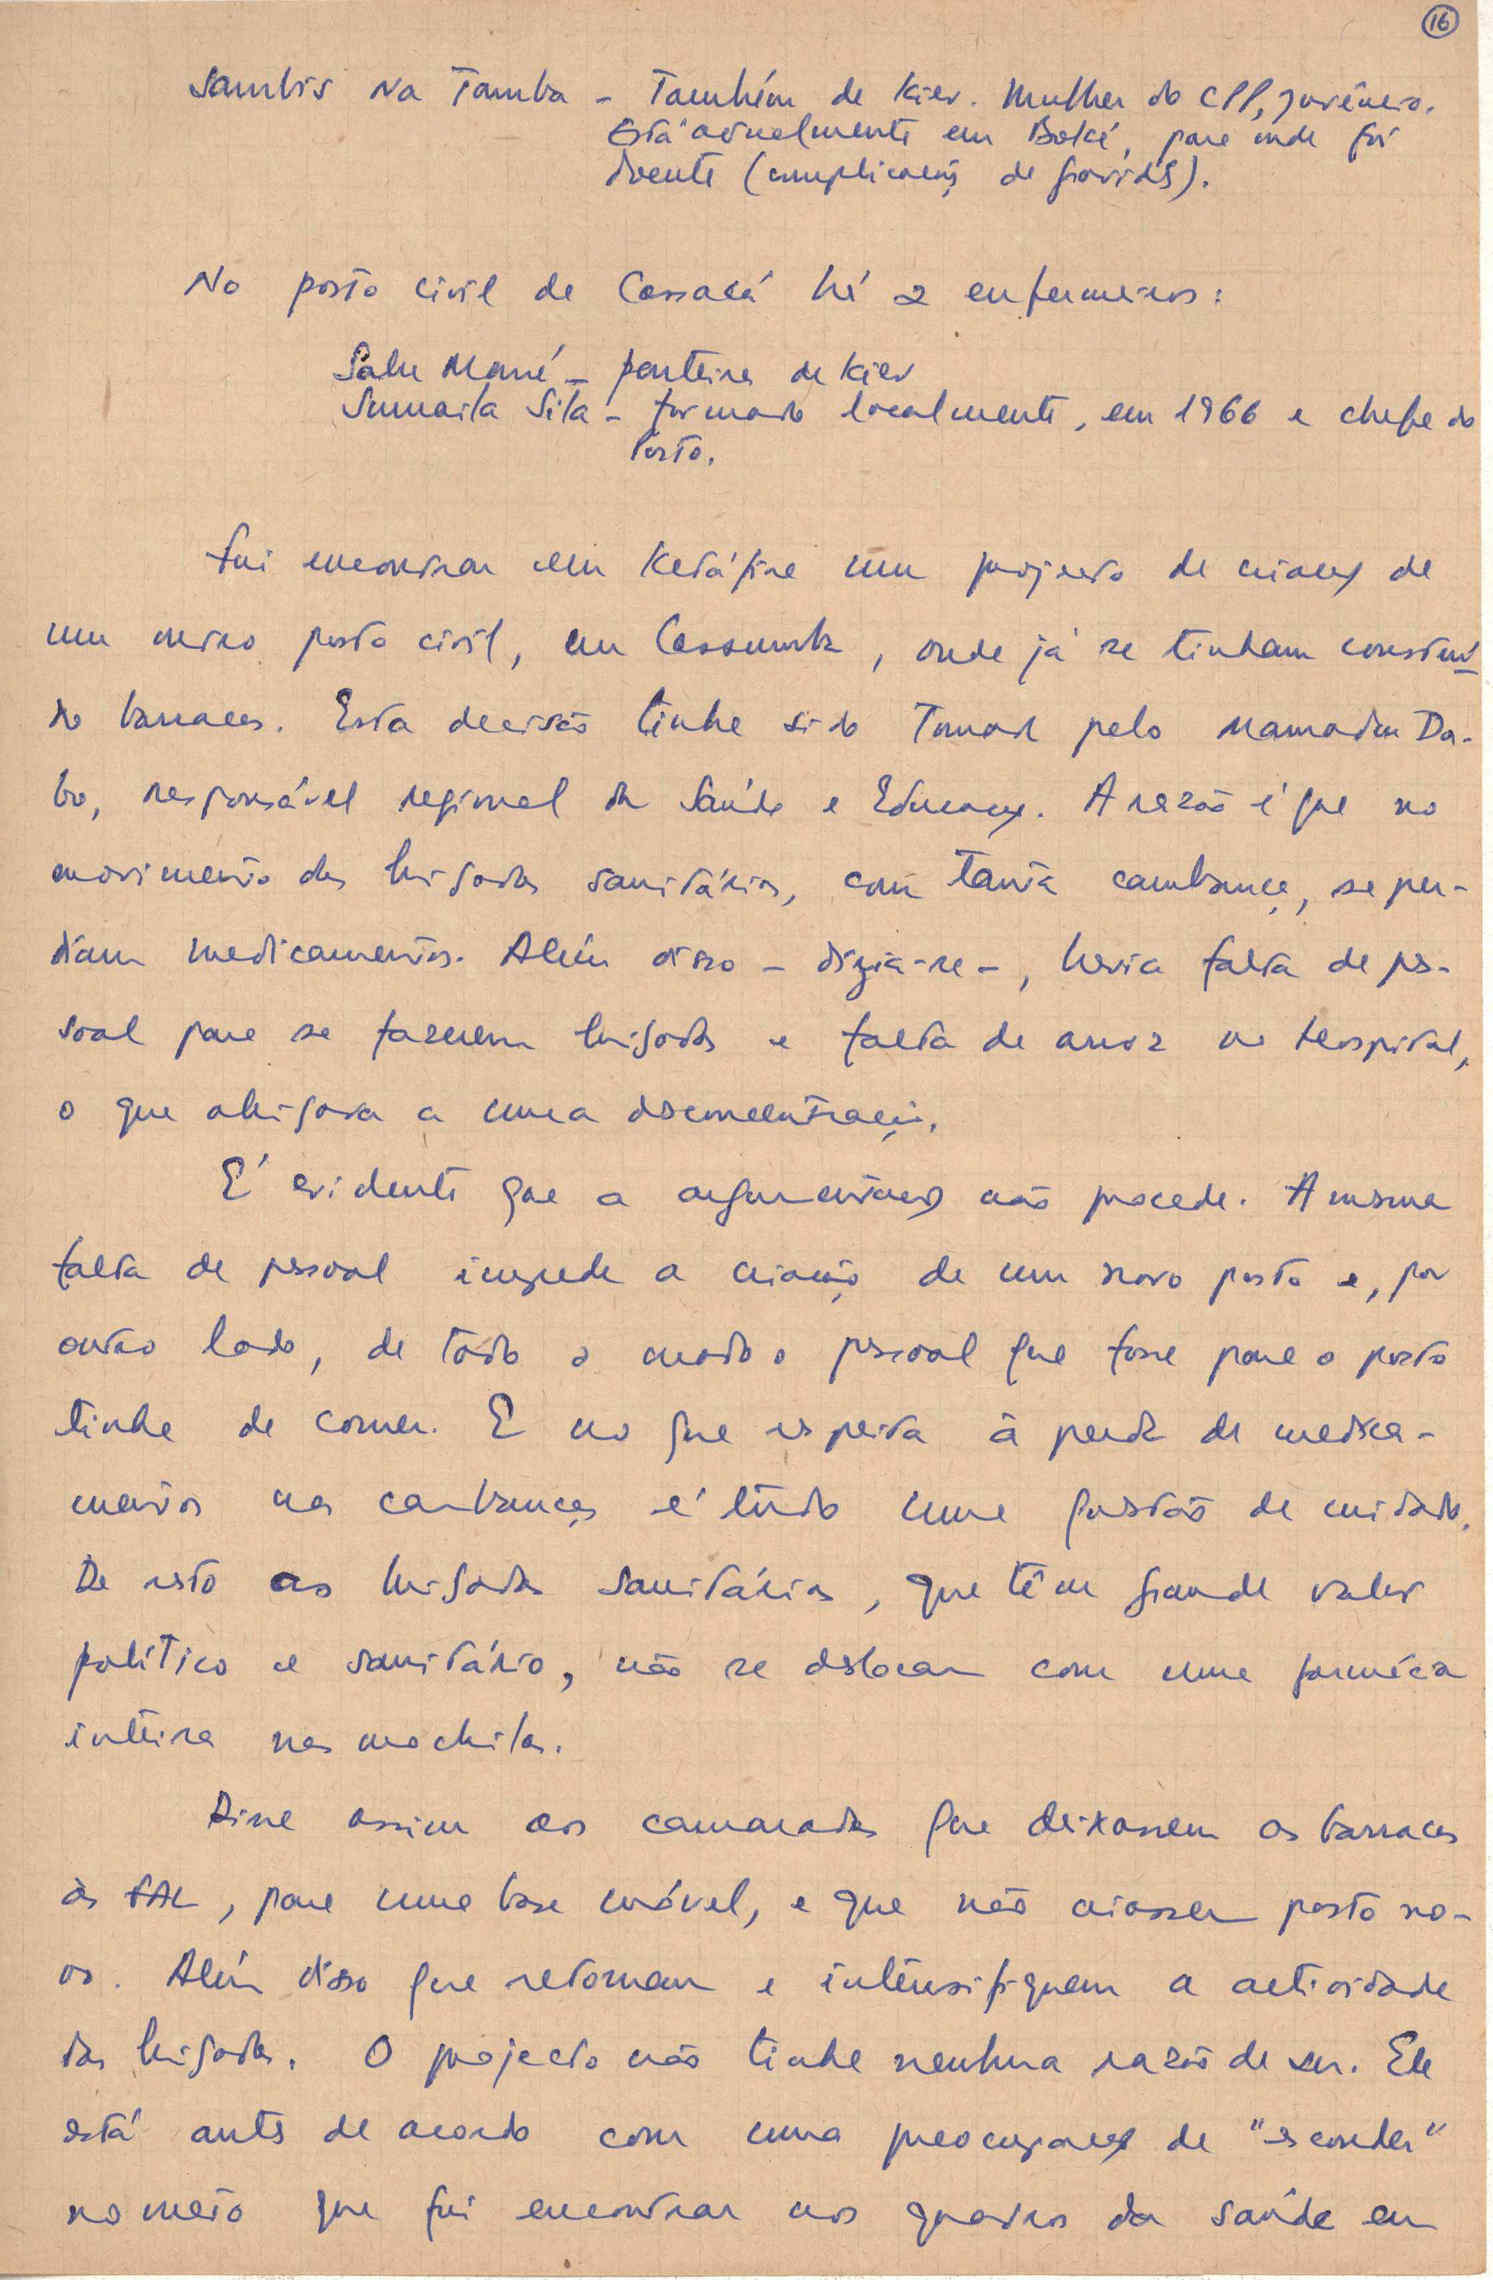 16
Sambis Na Tamba - Também de Kiev. Mulher do CPP, Juvêncio.
Está actualmente em Boké, para onde foi
doente (complicações de gravidez).
No posto civil de Cassacá há 2 enfermeiros:
Salu Mané - parteira de Kiev
Sumaila Sila - formado localmente, em 1966 e chefe do
Posto.
Fui encontrar em Ketáfine um projecto de criação de
um outro posto civil, em Cassumba, onde já se tinham construí-
do barracas. Esta decisão tinha sido tomada pelo Mamadu Da-
bo, responsável regional da Saúde e Educação. A razão é que no
movimento das brigadas sanitárias, com tanta cambança, se per-
diam medicamentos. Além disso - dizia-se -, havia falta de pes-
soal para se fazerem brigadas e falta de arroz no hospital,
o que obrigava a uma desconcentração.
É evidente que a argumentação não procede. A mesma
falta de pessoal impede a criação de um novo posto e, por
outro lado, de todo o modo o pessoal que fosse para o posto
tinha de comer. E no que respeita à perda de medica-
mentos nas cambanças é tudo uma questão de cuidado.
De resto as brigadas sanitárias, que têm grande valor
político e sanitário, não se deslocam com uma farmácia
inteira nas mochilas.
Disse assim aos camaradas que deixassem as barracas
às FAL, para uma base móvel, e que não criassem posto no-
vo. Além disso que retomam e intensifiquem a actividade
das brigadas. O projecto não tinha nenhuma razão de ser. Ele
está antes de acordo com uma preocupação de "esconder"
no mato que fui encontrar nos quadros da saúde em